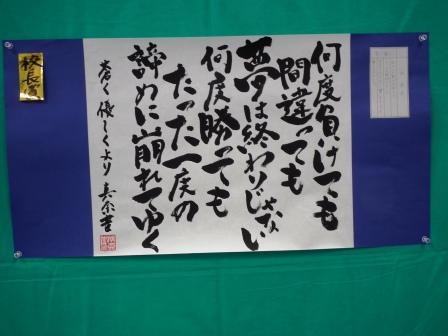 何度負けても
間違っても
夢は終わりじゃない
何度勝っても
たった一度の
諦めに崩れてゆく
蒼く優しくより 真奈書
校長賞